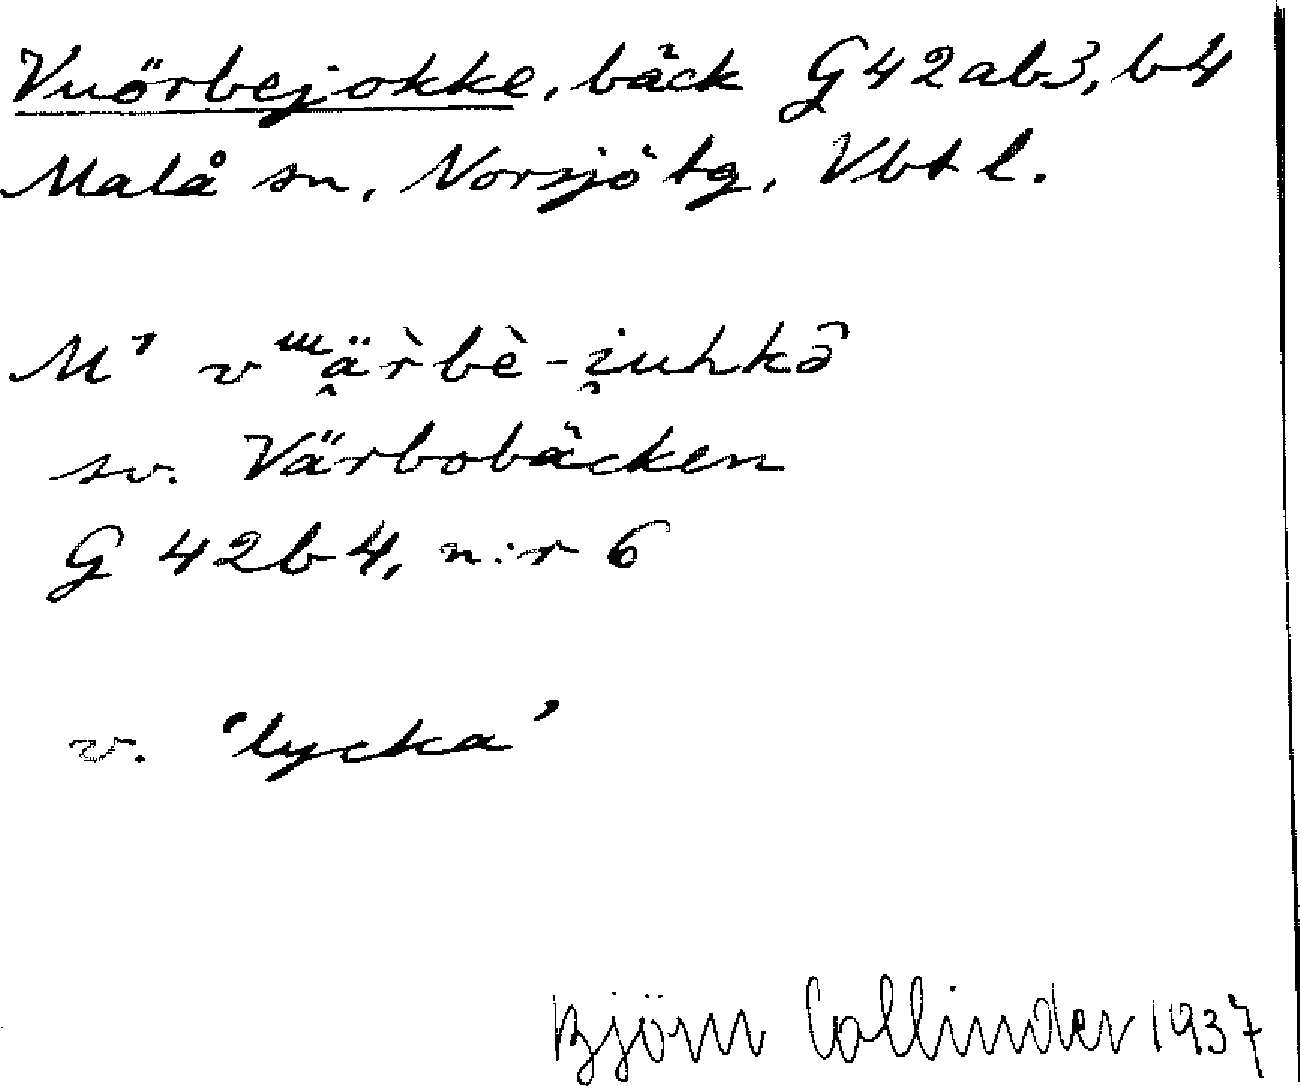 Vuörbejokke, bäck G42ab3, b4
Malå sn, Norsjö tg, Vbtl.
M' vᵚä̭r̀bè-i̯uhkə̂
sv. Värbobäcken
G 42b4, n:r 6
v. 'lycka'
Björn Collinder 1937